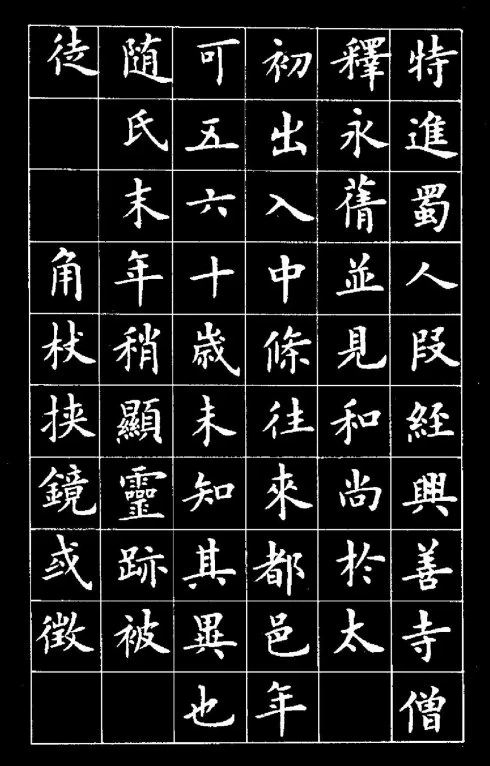 特進蜀人段經興善寺僧
釋永蒨並見和尚於太
初出入中條往來都邑年
可五六十歲未知其異也
随氏末年稍顯靈跡被
徒 角杖挟鏡或徵